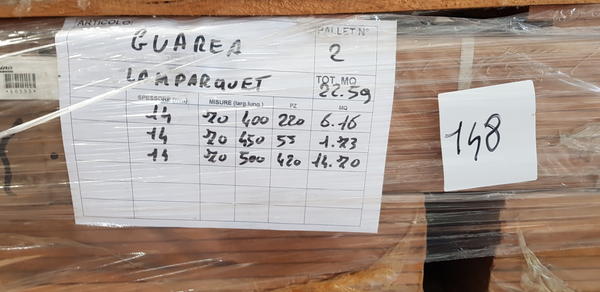 ARTICOLO:
GUAREA
PALLET N°
2
LAMPARQUET
TOT. MQ
22.59
SPESSORE MISURE (larg.lung.) PZ MQ
14 70 400 220 6.16
14 70 450 55 1.73
14 70 500 420 14.70
148